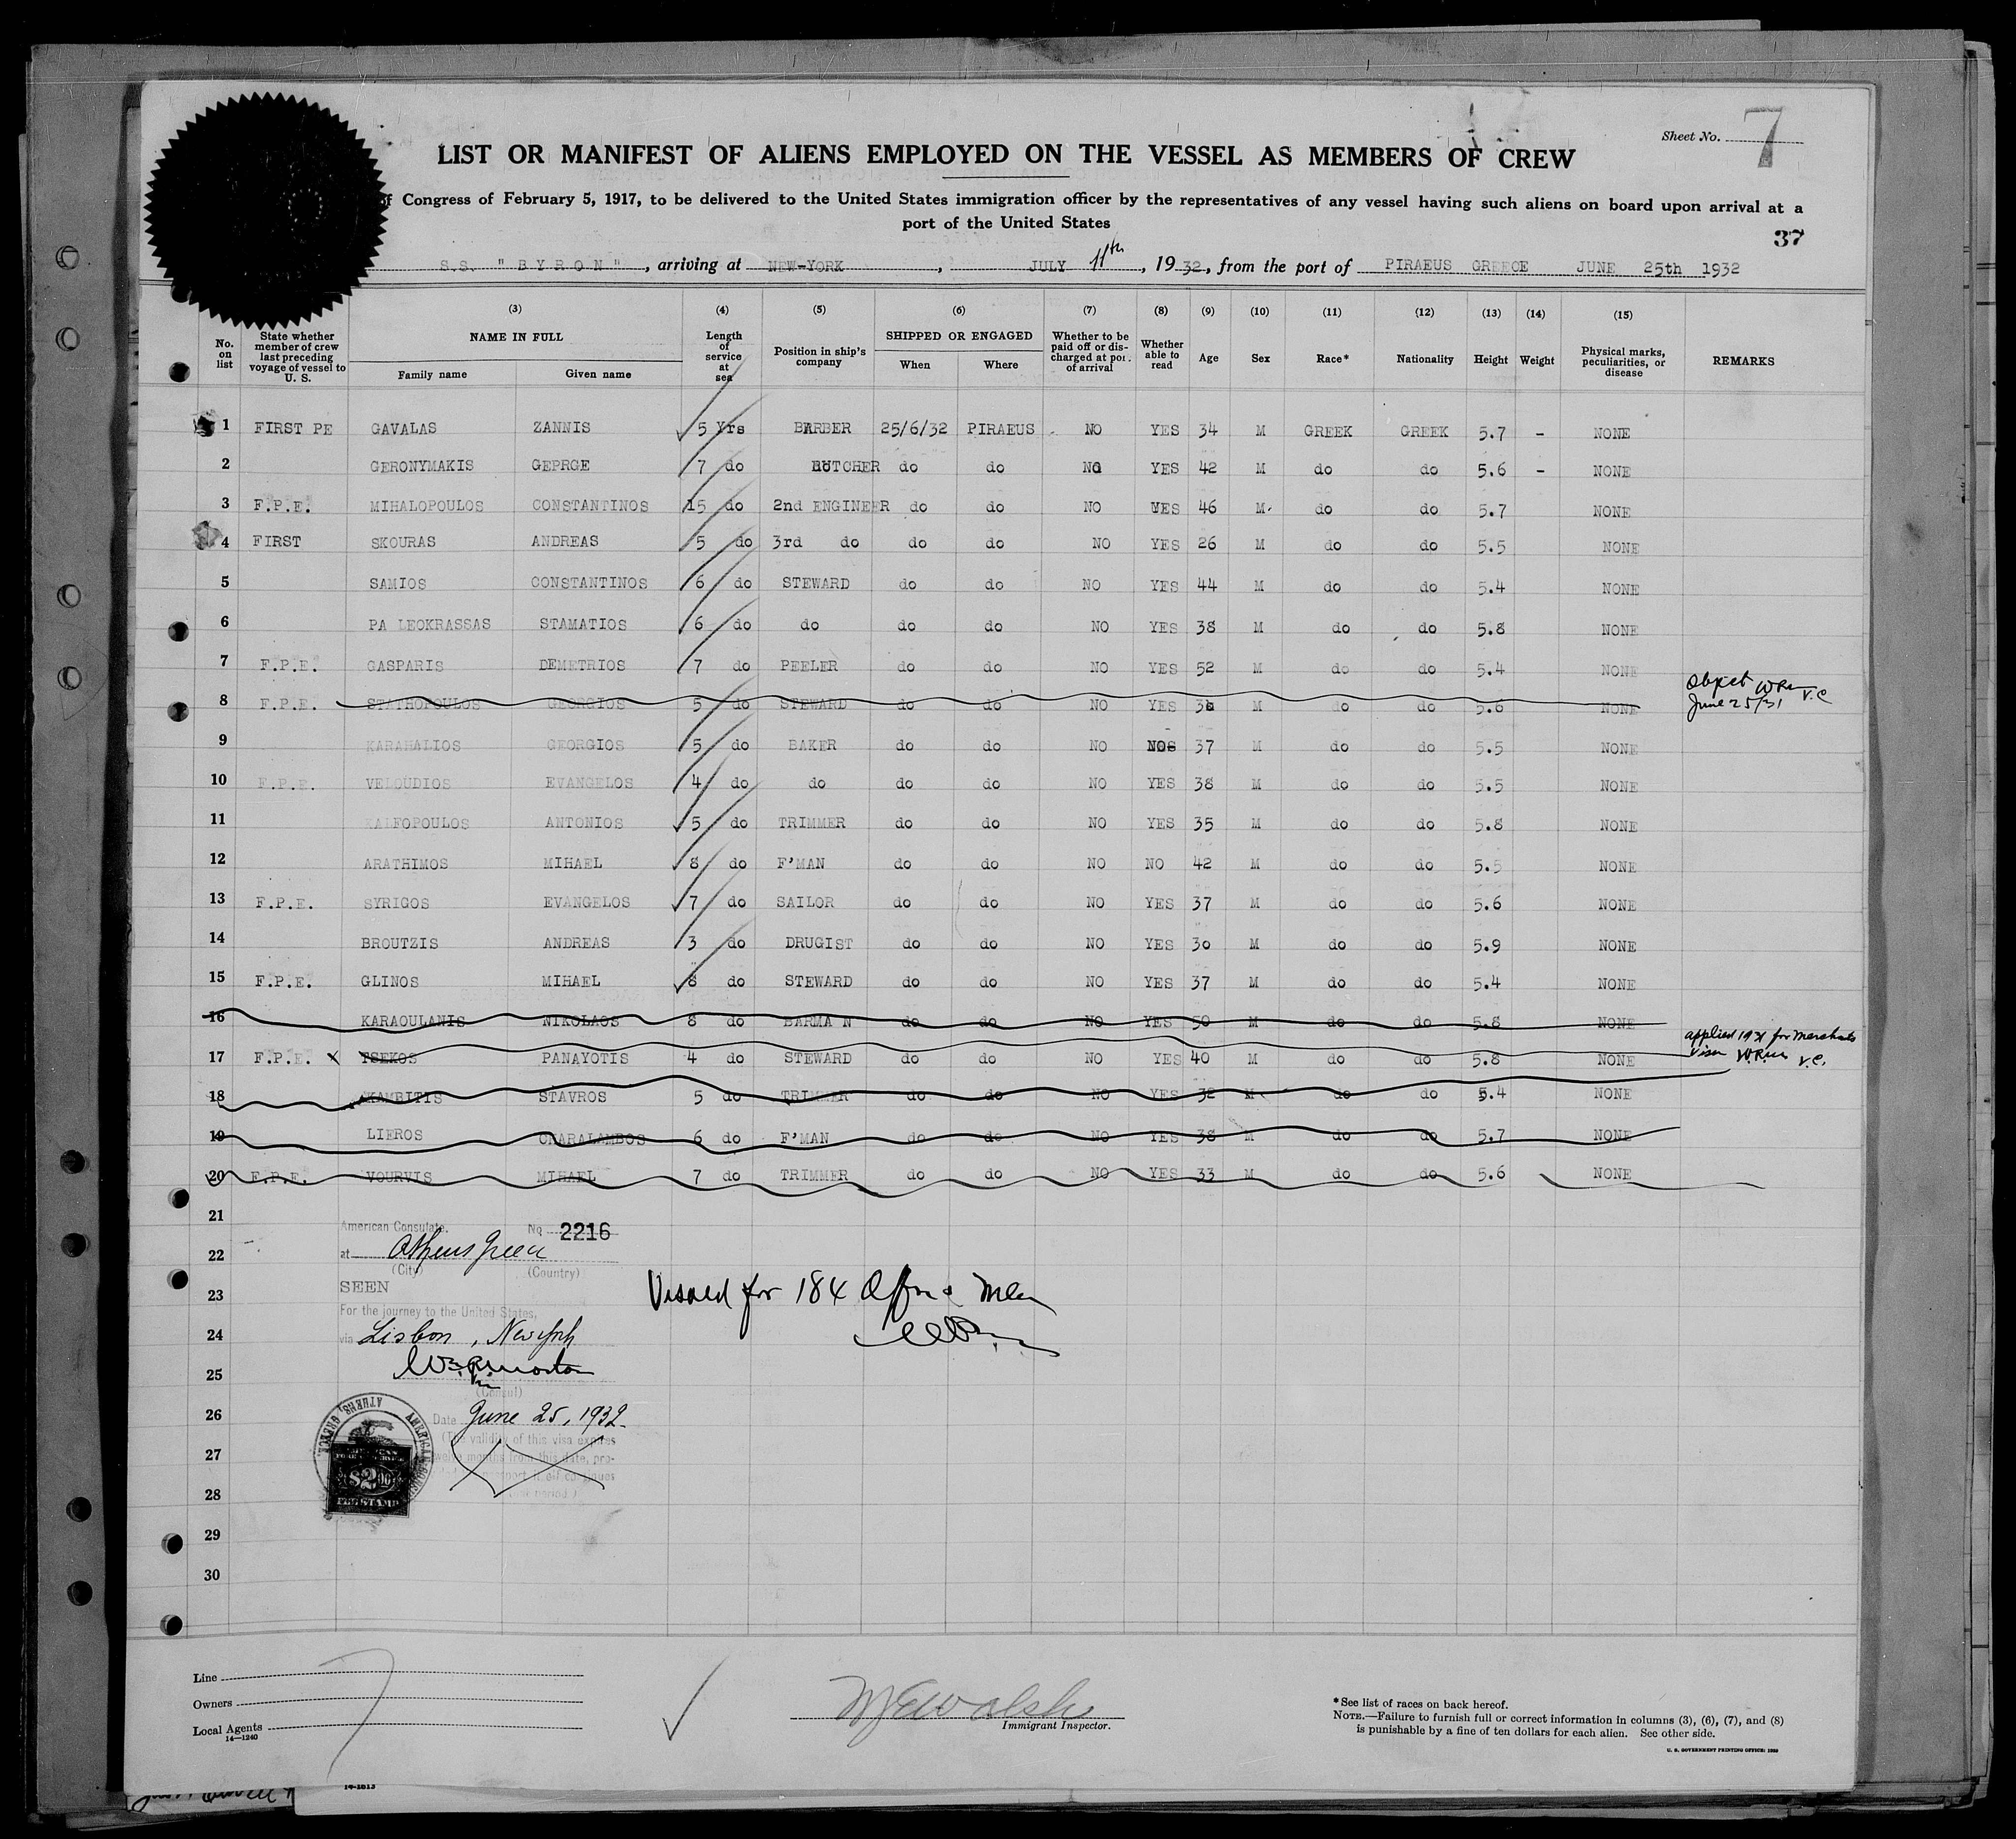 Sheet No. 7
LIST OR MANIFEST OF ALIENS EMPLOYED ON THE VESSEL AS MEMBERS OF CREW
of Congress of February 5, 1917, to be delivered to the United States immigration officer by the representatives of any vessel having such aliens on board upon arrival at a
port of the United States
37
S.S. "BYRON", arriving at NEW-YORK, JULY 11th, 1932, from the port of PIRAEUS GREECE JUNE 25th 1932
(3) (4) (5) (6) (7) (8) (9) (10) (11) (12) (13) (14) (15)
No. on list State whether member of crew last preceding voyage of vessel to U. S. NAME IN FULL Family name Given name Length of service at sea Position in ship's company SHIPPED OR ENGAGED When Where Whether to be paid off or discharged at port of arrival Whether able to read Age Sex Race* Nationality Height Weight Physical marks, peculiarities, or disease REMARKS
1 FIRST PE GAVALAS ZANNIS 5 Yrs BARBER 25/6/32 PIRAEUS NO YES 34 M GREEK GREEK 5.7 - NONE
2 GERONYMAKIS GEPRGE 7 do BUTCHER do do NO YES 42 M do do 5.6 - NONE
3 F.P.E. MIHALOPOULOS CONSTANTINOS 15 do 2nd ENGINEER do do NO YES 46 M do do 5.7 NONE
4 FIRST SKOURAS ANDREAS 5 do 3rd do do do NO YES 26 M do do 5.5 NONE
5 SAMIOS CONSTANTINOS 6 do STEWARD do do NO YES 44 M do do 5.4 NONE
6 PA LEOKRASSAS STAMATIOS 6 do do do do NO YES 38 M do do 5.8 NONE
7 F.P.E. GASPARIS DEMETRIOS 7 do PEELER do do NO YES 52 M do do 5.4 NONE
8 F.P.E. STATHOPOULOS GEORGIOS 5 do STEWARD do do NO YES M do do 5.6 NONE June 25/31 V.C
9 KARAHALIOS GEORGIOS 5 do BAKER do do NO 37 M do do 5.5 NONE
10 F.P.E. VELOUDIOS EVANGELOS 4 do do do do NO YES 38 M do do 5.5 NONE
11 KALFOPOULOS ANTONIOS 5 do TRIMMER do do NO YES 35 M do do 5.8 NONE
12 ARATHIMOS MIHAEL 8 do F'MAN do do NO NO 42 M do do 5.5 NONE
13 F.P.E. SYRIGOS EVANGELOS 7 do SAILOR do do NO YES 37 M do do 5.6 NONE
14 BROUTZIS ANDREAS 3 do DRUGIST do do NO YES 30 M do do 5.9 NONE
15 F.P.E. GLINOS MIHAEL 8 do STEWARD do do NO YES 37 M do do 5.4 NONE
16 KARAOULANIS NIKOLAOS 8 do BARMA N do do NO YES 50 M do do 5.8 NONE
17 F.P.E. X TSEKOS PANAYOTIS 4 do STEWARD do do NO YES 40 M do do 5.8 NONE applied for visa V.C.
18 KAMBITIS STAVROS 5 do TRIMMER do do NO YES 32 M do do 5.4 NONE
19 LIEROS CHARALAMBOS 6 do F'MAN do do NO YES 38 M do do 5.7 NONE
20 F.P.E. VOURVIS MIHAEL 7 do TRIMMER do do NO YES 33 M do do 5.6 NONE
21
American Consulate, No 2216
22
at Athens Greece
(City) (Country)
SEEN
23
For the journey to the United States,
Visaed for 184 Off & Men
24
via Lisbon, New York
25
(Consul)
26
Date June 25, 1932
(The validity of this visa expires
27
twelve months from this date, pro-
28
29
30
AMERICAN CONSULATE ATHENS, GREECE
$2.00
FEE STAMP
Line
Owners
Local Agents
14—1240
M E Walsh
Immigrant Inspector.
*See list of races on back hereof.
NOTE.—Failure to furnish full or correct information in columns (3), (6), (7), and (8)
is punishable by a fine of ten dollars for each alien. See other side.
U. S. GOVERNMENT PRINTING OFFICE